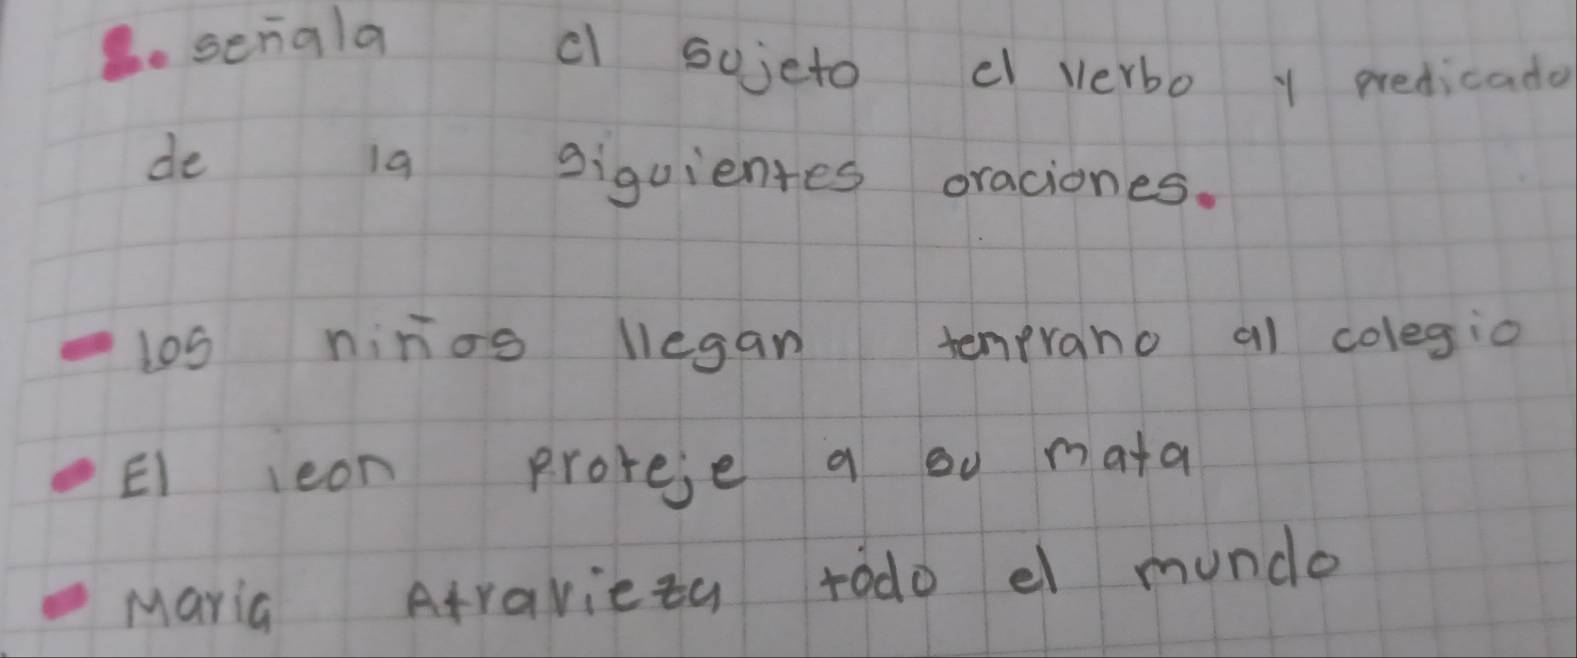 8. señala el sujeto el verbo y predicado
de la siguientes oraciones.
- los niños llegan temprano al colegio
- El leon proteje a su mata
- Maria Atravieza todo el mundo